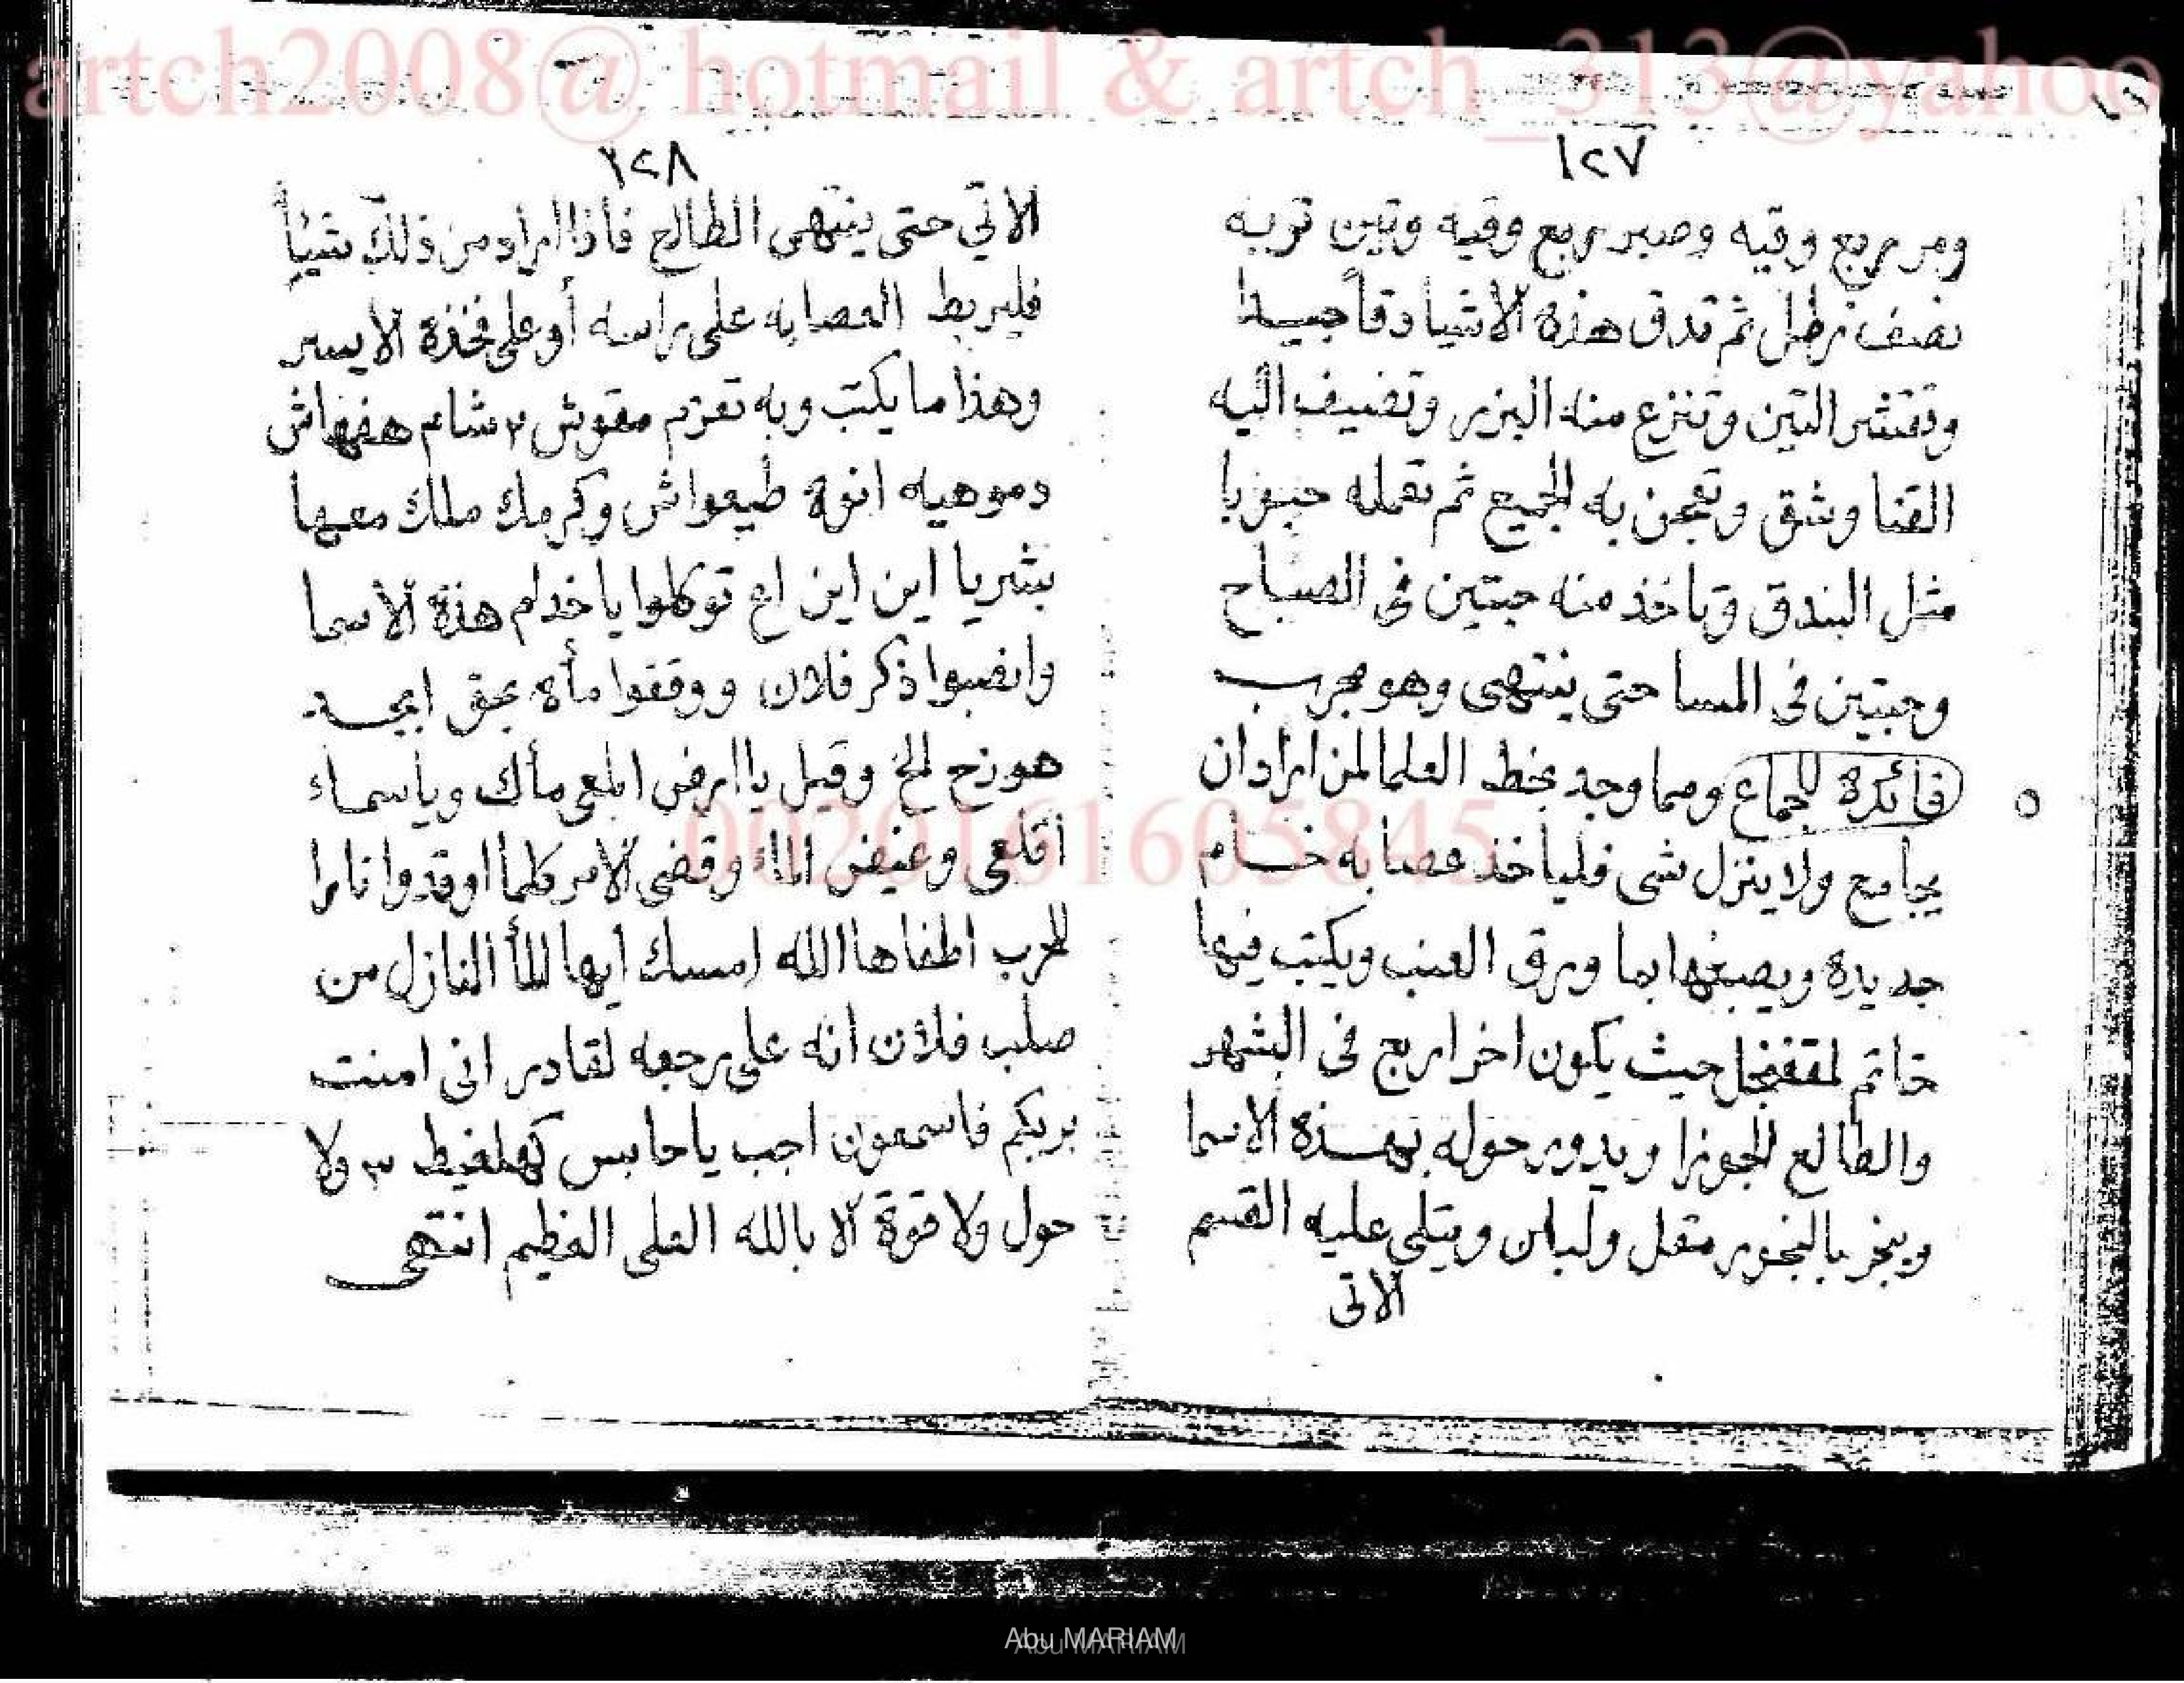 artch2008@ hotmail & artch_313@yahoo
١٢٧
ومر ربع وقيه وصبر ربع وقيه وتين تربه
نصف رطل ثم تدق هذه الاشيا دقاً جيدا
وتقشر التين وتنزع منه البزر وتضيف اليه
القنا وشق وتعجن به الجميع ثم تعمله حبوبا
مثل البندق وتاخذ منه حبتين فى الصباح
وحبتين فى المسا حتى ينتهى وهو مجرب
فائدة للجماع ومما وجد بخط العلما لمن اراد ان
يجامع ولا ينزل شى فلياخذ عصابه خام
جديدة ويصبغها بما ورق العنب ويكتب فيها
خاتم لمقفنجل حيث يكون اخر اربع فى الشهر
والطالع الجوزا ويدور حوله بهذه الاسما
ويبخر بالبخور مقل ولبان ويتلى عليه القسم
الاتى
١٢٨
الاتي حتى ينتهى الطالع فاذا اراد من ذلك شيئاً
فليربط العصابه على راسه أو على فخذه الايسر
وهذا ما يكتب وبه تعزم مقوش ٢ شام هفهاش
دموهيه انوة طيعواش وكرمك ملك معها
بشريا اين اين اع توكلوا يا خدام هذه الاسما
وانصبوا ذكر فلان ووقفوا مأه بحق ابجد
هوزح الخ وقيل يا ارض ابلعى مأك وياسماء
اقلعى وغيض الماء وقضى الامر كلما اوقدوا نارا
للحرب اطفاها الله امسك ايها المأ النازل من
صلب فلان انه على رجعه لقادر انى امنت
بربكم فاسمعون اجب يا حابس كهلفيط ٣ ولا
حول ولا قوة الا بالله العلى العظيم انتهى
0020161605845
Abu MARIAM